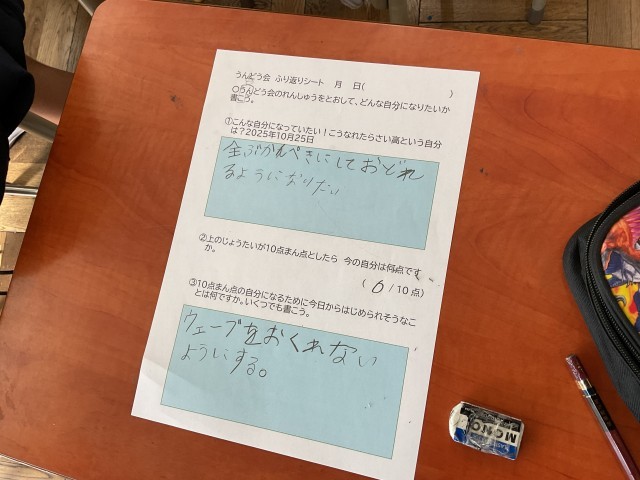 うんどう会 ふり返りシート 月 日( )
〇うんどう会のれんしゅうをとおして、どんな自分になりたいか
書こう。
①こんな自分になっていたい！こうなれたらさい高という自分
は？2025年10月25日
全ぶかんぺきにしておどれ
るようになりたい
②上のじょうたいが10点まん点としたら 今の自分は何点です
か。
( 6 / 10 点)
③10点まん点の自分になるために今日からはじめられそうなこ
とは何ですか。いくつでも書こう。
ウェーブをおくれない
ようにする。
MONO